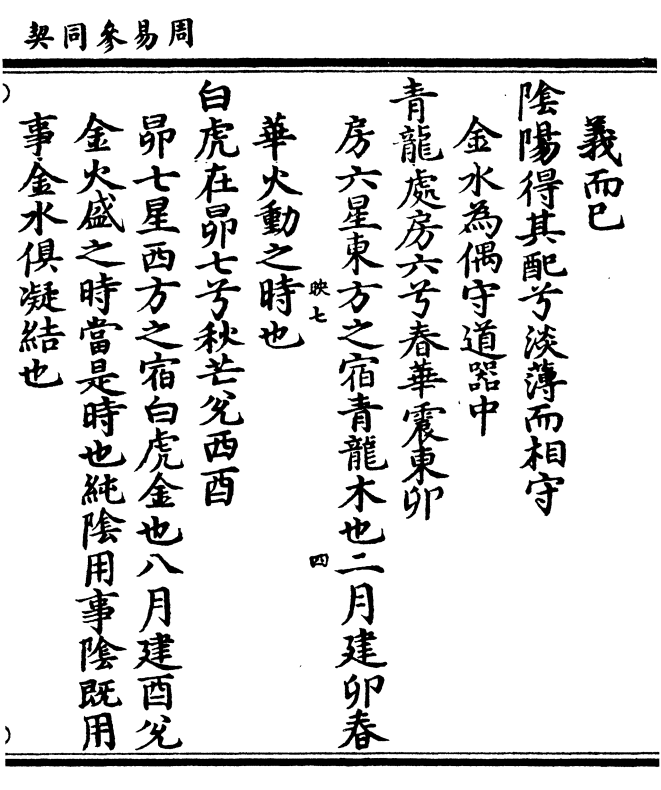 周易參同契
義而已
陰陽得其配兮淡薄而相守
金水為偶守道器中
青龍處房六兮春華震東卯
房六星東方之宿青龍木也二月建卯春
映七
四
華火動之時也
白虎在昴七兮秋芒兌西酉
昴七星西方之宿白虎金也八月建酉兌
金火盛之時當是時也純陰用事陰既用
事金水俱凝結也